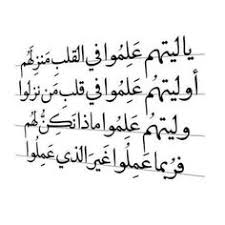 ياليتهم عَلِمُوا في القلبِ مَنزِلَهُم
أوليتهُم عَلِمُوا في قلبِ مَن نزلُوا
وليتهُم عَلِمُوا ماذا نَكِنُّ لهُم
فرُبما عَمِلُوا غَيرَ الذي عَمِلُوا